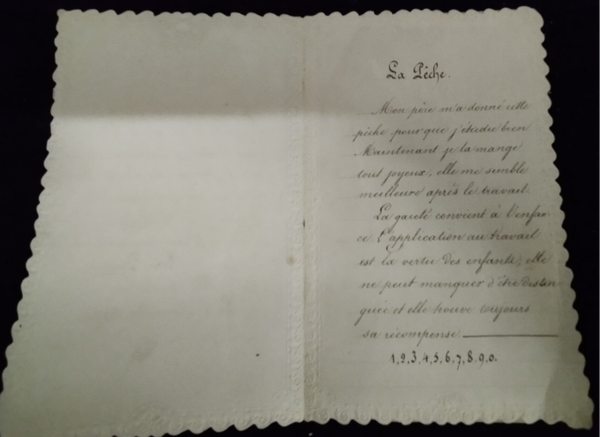 La Pêche.
Mon père m'a donné cette
pêche pour que j'étudie bien
Maintenant je la mange
tout joyeux, elle me semble
meilleure après le travail.
La gaieté convient à l'enfan-
ce. L'application au travail
est la vertu des enfants, elle
ne peut manquer d'être distin-
guée et elle trouve toujours
sa récompense
1,2,3,4,5,6,7,8,9,0.